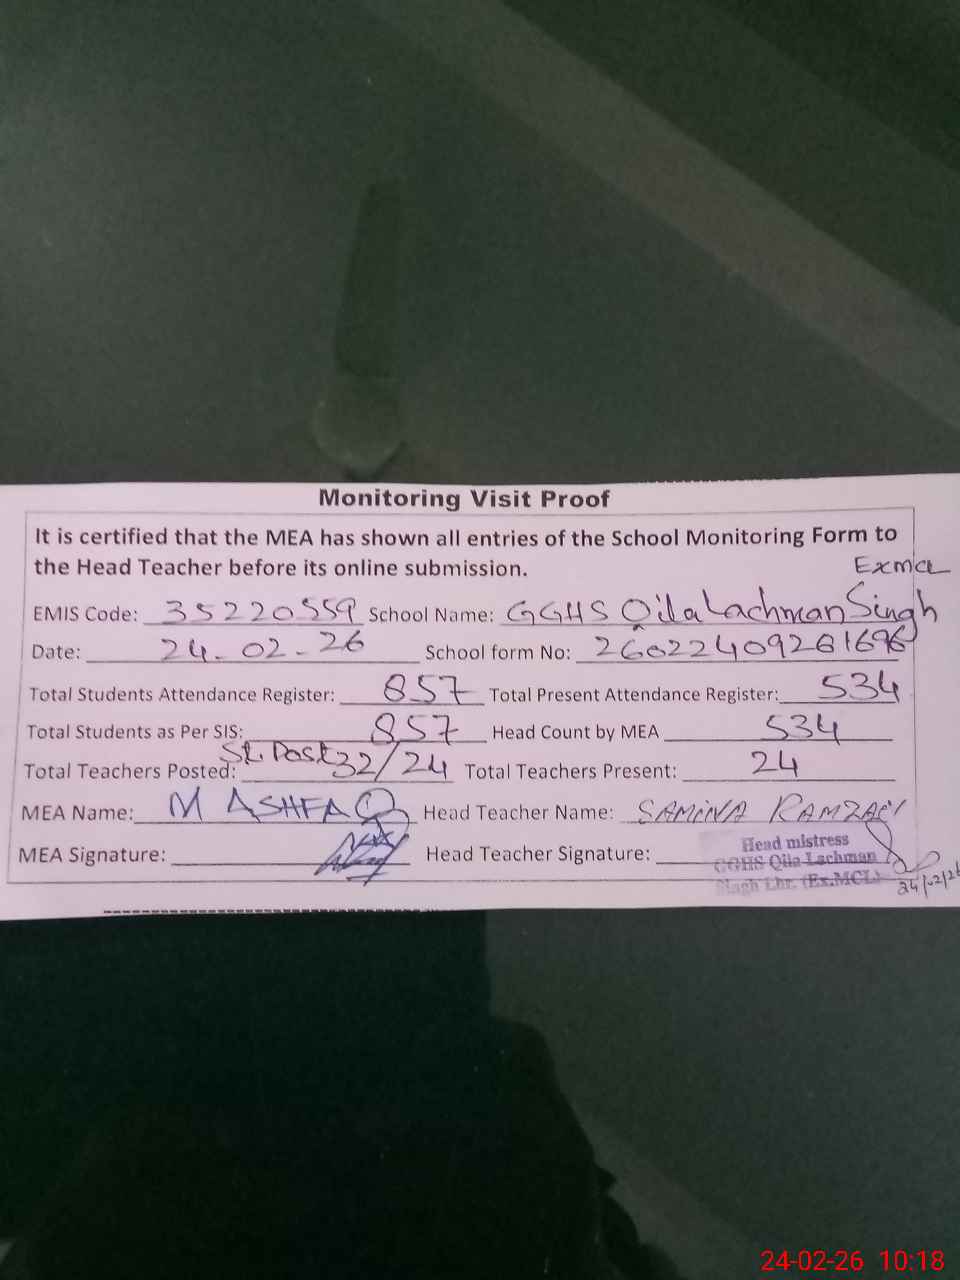 Monitoring Visit Proof
It is certified that the MEA has shown all entries of the School Monitoring Form to
the Head Teacher before its online submission.
Ex MCL
EMIS Code: 35220559 School Name: GGHS Qila Lachman Singh
Date: 24-02-26 School form No:
Total Students Attendance Register: 857 Total Present Attendance Register: 534
Total Students as Per SIS: 857 Head Count by MEA 534
Total Teachers Posted: 32/24 Total Teachers Present: 24
MEA Name: M ASHFAQ Head Teacher Name: SAMINA RAMZAN
MEA Signature: Head Teacher Signature:
Head mistress
GGHS Qila Lachman
Singh Lhr. (Ex.MCL)
24/02/26
24-02-26 10:18